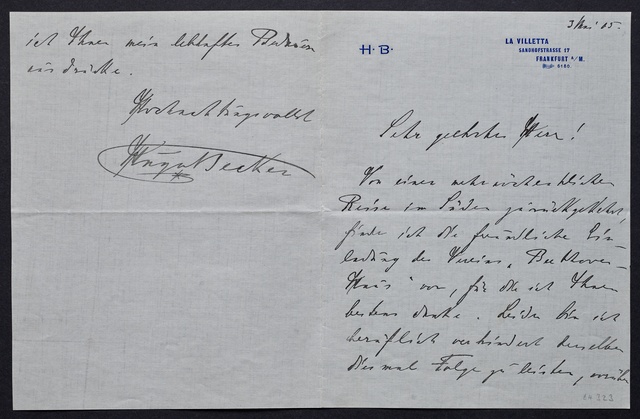 3 Mai 05.
H. B.
LA VILLETTA
SANDHOFSTRASSE 17
FRANKFURT A/M.
Sehr geehrter Herr!
Von einer mehrwöchentlichen
Reise im Süden zurückgekehrt,
finde ich die freundliche Ein-
ladung des Vereins „Beethoven-
Haus" vor, für die ich Ihnen
bestens danke. Leider bin ich
beruflich verhindert derselben
diesmal Folge zu leisten, worüber
ich Ihnen mein lebhaftes Bedauern
ausdrücke.
Hochachtungsvollst
Hugo Becker